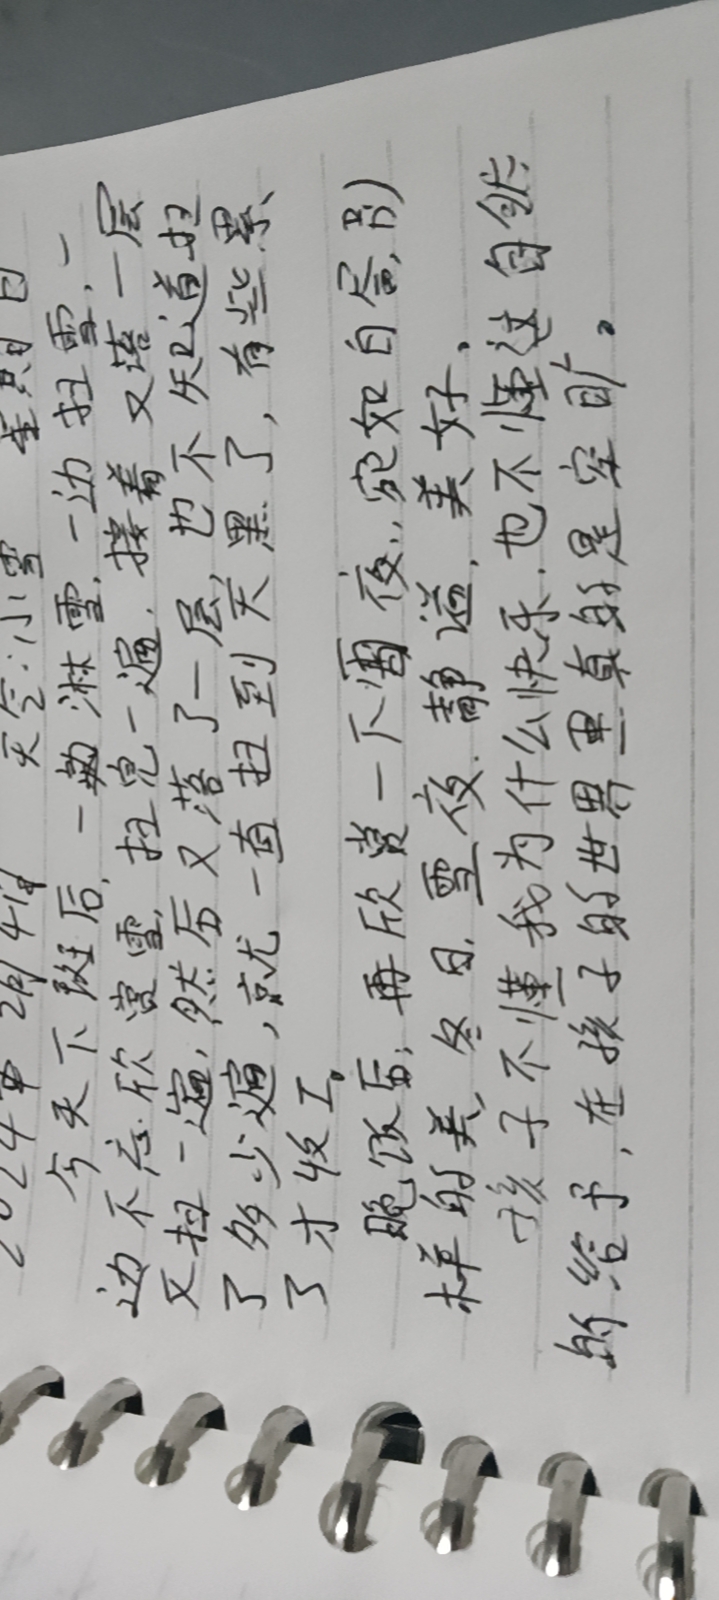 2024年2月4日 天气:小雪 星期日
今天下班后,一边淋雪,一边扫雪,一
边不忘欣赏雪,扫完一遍,接着又落一层
又扫一遍,然后又落了一层,也不知道扫
了多少遍,就一直扫到天黑了,有些累
了才收工。
晚饭后,再欣赏一下雪夜,宛如白昼,别
样的美,冬日,雪夜,静谧,美好,
孩子不懂我为什么快乐,也不懂这自然
的给予,在孩子的世界里真的是空旷。